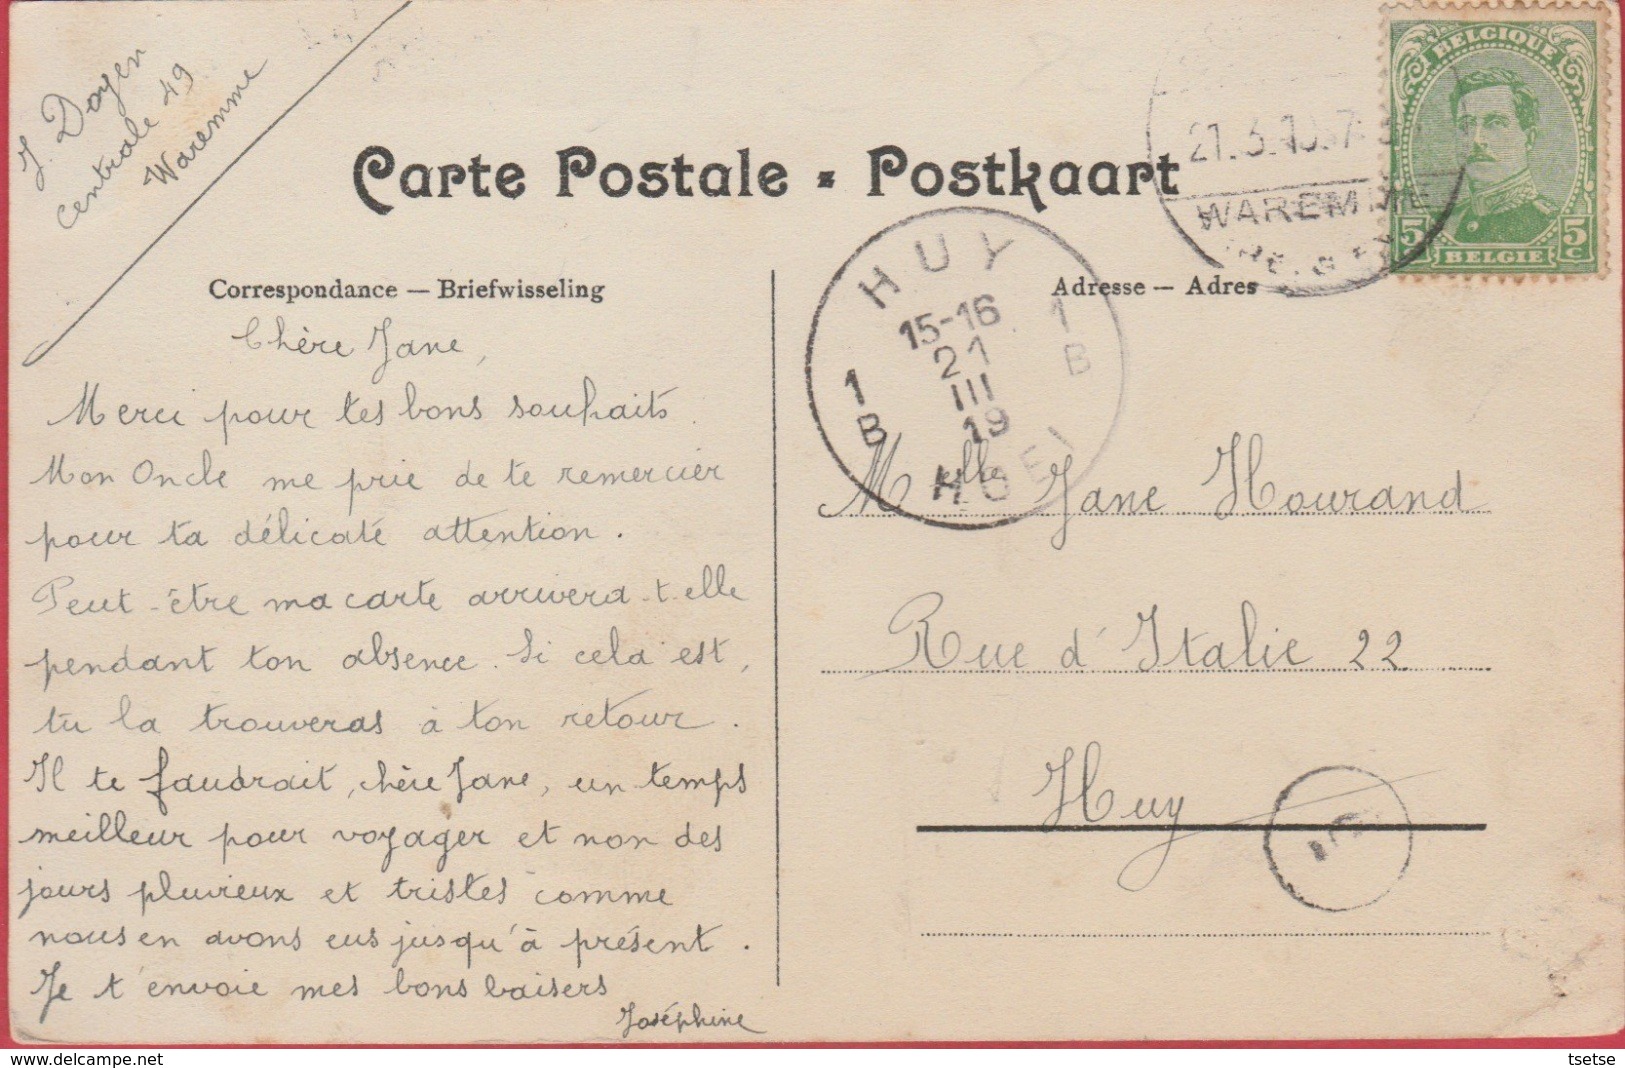 J. Doyen
Centrale 49
Waremme
Carte Postale - Postkaart
BELGIQUE
5 5 c
BELGIE
WAREMME
HUY
15-16
21
III
19
1 B
1 B
HOEI
Correspondance — Briefwisseling
Adresse — Adres
Chère Jane,
Merci pour tes bons souhaits.
Mon Oncle me prie de te remercier
pour ta délicate attention.
Peut-être ma carte arrivera-t-elle
pendant ton absence. Si cela est,
tu la trouveras à ton retour.
Il te faudrait, chère Jane, un temps
meilleur pour voyager et non des
jours pluvieux et tristes comme
nous en avons eus jusqu'à présent.
Je t'envoie mes bons baisers
Joséphine
Melle Jane Hourand
Rue d'Italie 22
Huy
delcampe.net
tsetse